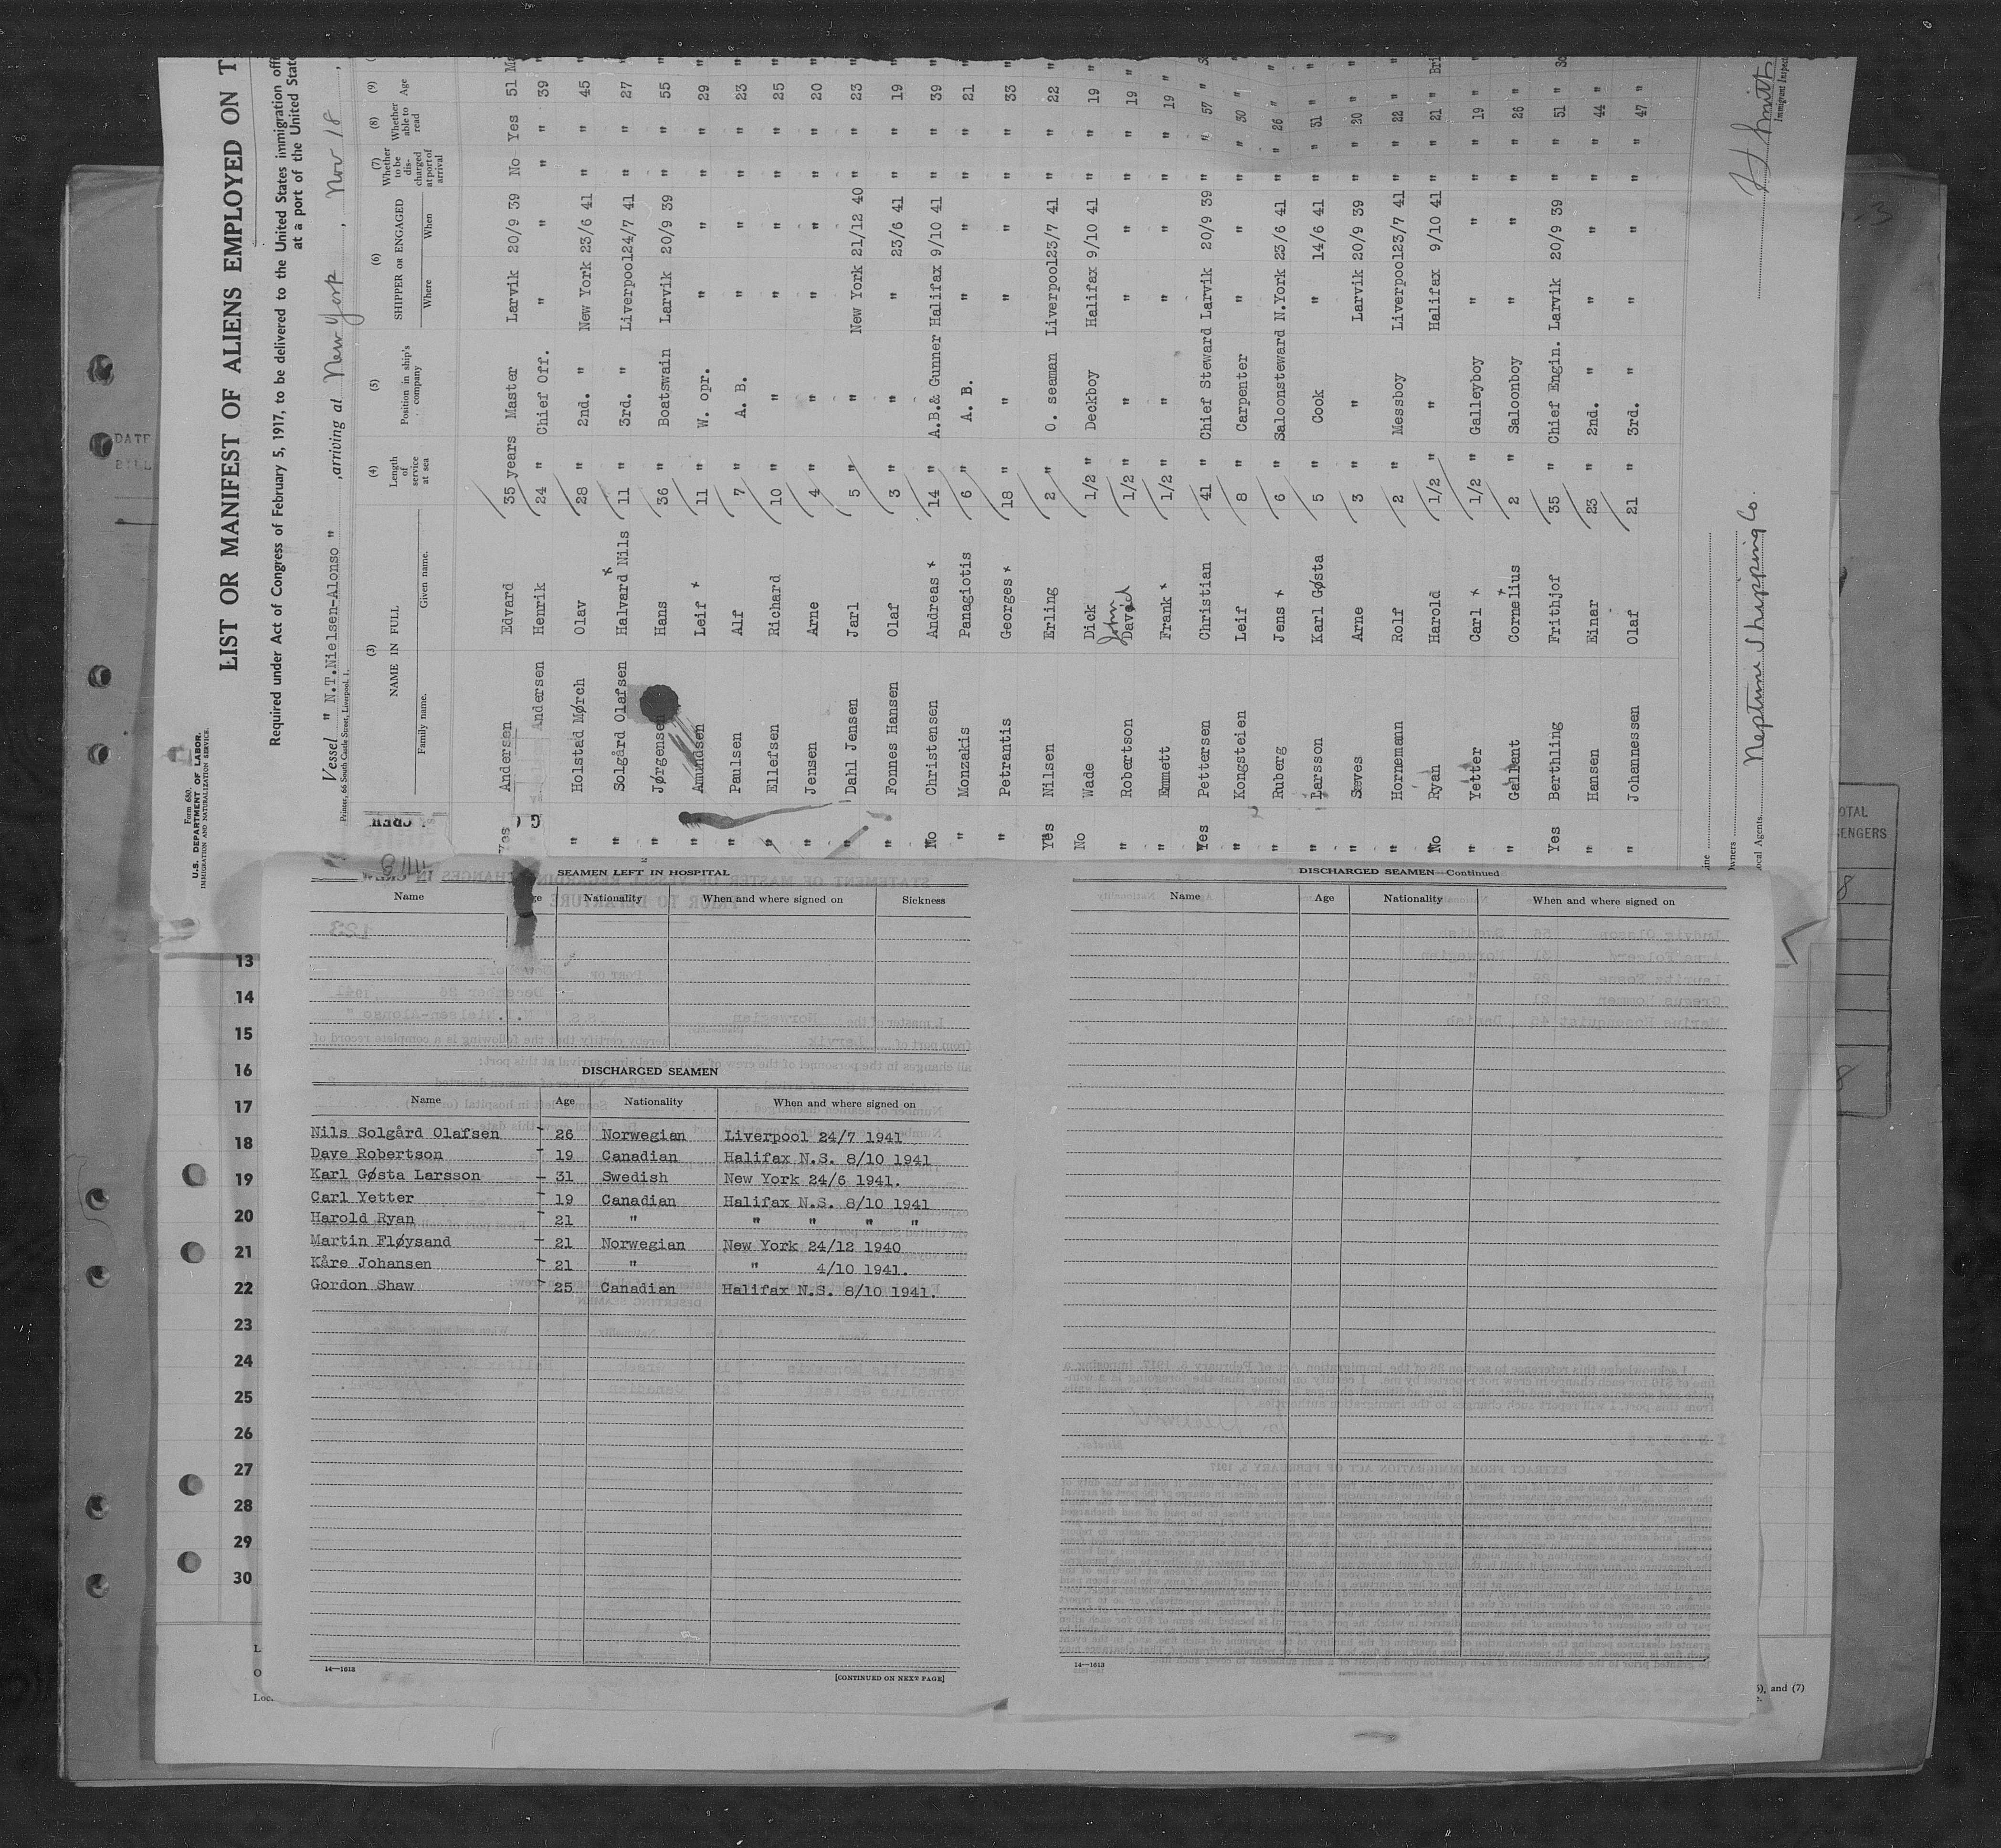 Form 680.
U.S. DEPARTMENT OF LABOR.
IMMIGRATION AND NATURALIZATION SERVICE.
LIST OR MANIFEST OF ALIENS EMPLOYED ON T
Required under Act of Congress of February 5, 1917, to be delivered to the United States immigration off
at a port of the United State
Vessel " N.T.Nielsen-Alonso " , arriving at New York , Nov 18 ,
Printer, 66 South Castle Street, Liverpool, 1.
(3) (4) (5) (6) (7) (8) (9)
NAME IN FULL Length of service at sea Position in ship's company SHIPPER OR ENGAGED Whether to be discharged at port of arrival Whether able to read Age
Family name. Given name. Where When
Yes Andersen Edvard 35 years Master Larvik 20/9 39 No Yes 51 Ma
Andersen Henrik 24 " Chief Off. " " " " 39 "
" Holstad Mørch Olav 28 " 2nd. " New York 23/6 41 " " 45 "
" Solgård Olafsen Halvard Nils x 11 " 3rd. " Liverpool24/7 41 " " 27 "
" Jørgensen Hans 36 " Boatswain Larvik 20/9 39 " " 55 "
" Amundsen Leif x 11 " W. opr. " " " " 29 "
" Paulsen Alf 7 " A. B. " " " " 23 "
" Ellefsen Richard 10 " " " " " " 25 "
" Jensen Arne 4 " " " " " " 20 "
" Dahl Jensen Jarl 5 " " New York 21/12 40 " " 23 "
" Fonnes Hansen Olaf 3 " " " 23/6 41 " " 19 "
No Christensen Andreas x 14 " A.B.& Gunner Halifax 9/10 41 " " 39 "
" Monzakis Panagiotis 6 " A. B. " " " " 21 "
" Petrantis Georges x 18 " " " " " " 33 "
Yes Nilsen Erling 2 " O. seaman Liverpool23/7 41 " " 22 "
No Wade Dick 1/2 " Deckboy Halifax 9/10 41 " " 19 "
" Robertson John David 1/2 " " " " " " 19 "
" Emmett Frank x 1/2 " " " " " " 19 "
Yes Pettersen Christian 41 " Chief Steward Larvik 20/9 39 " " 57 "
" Kongsteien Leif 8 " Carpenter " " " " 30 "
" Ruberg Jens x 6 " Saloonsteward N.York 23/6 41 " " 26 "
" Larsson Karl Gøsta 5 " Cook " 14/6 41 " " 31 "
" Seves Arne 3 " " Larvik 20/9 39 " " 20 "
" Hornemann Rolf 2 " Messboy Liverpool23/7 41 " " 22 "
No Ryan Harold 1/2 " " Halifax 9/10 41 " " 21 " Bri
" Yetter Carl x 1/2 " Galleyboy " " " " 19 "
" Gallant Cornelius x 2 " Saloonboy " " " " 26 "
Yes Berthling Frithjof 35 " Chief Engin. Larvik 20/9 39 " " 51 "
" Hansen Einar 23 " 2nd. " " " " " 44 "
" Johannessen Olaf 21 " 3rd. " " " " " 47 "
Local Agents Neptune Shipping Co.
Smith
Immigrant Inspec
SEAMEN LEFT IN HOSPITAL
Name Age Nationality When and where signed on Sickness
DISCHARGED SEAMEN
Name Age Nationality When and where signed on
Nils Solgård Olafsen 26 Norwegian Liverpool 24/7 1941
Dave Robertson 19 Canadian Halifax N.S. 8/10 1941
Karl Gøsta Larsson 31 Swedish New York 24/6 1941.
Carl Yetter 19 Canadian Halifax N.S. 8/10 1941
Harold Ryan 21 " " " " "
Martin Fløysand 21 Norwegian New York 24/12 1940
Kåre Johansen 21 " " 4/10 1941.
Gordon Shaw 25 Canadian Halifax N.S. 8/10 1941.
14—1613
[CONTINUED ON NEXT PAGE]
DISCHARGED SEAMEN—Continued
Name Age Nationality When and where signed on
14—1613
13
14
15
16
17
18
19
20
21
22
23
24
25
26
27
28
29
30
Loc.
5), and (7)
DATE
BILL
OTAL
ENGERS
8
8